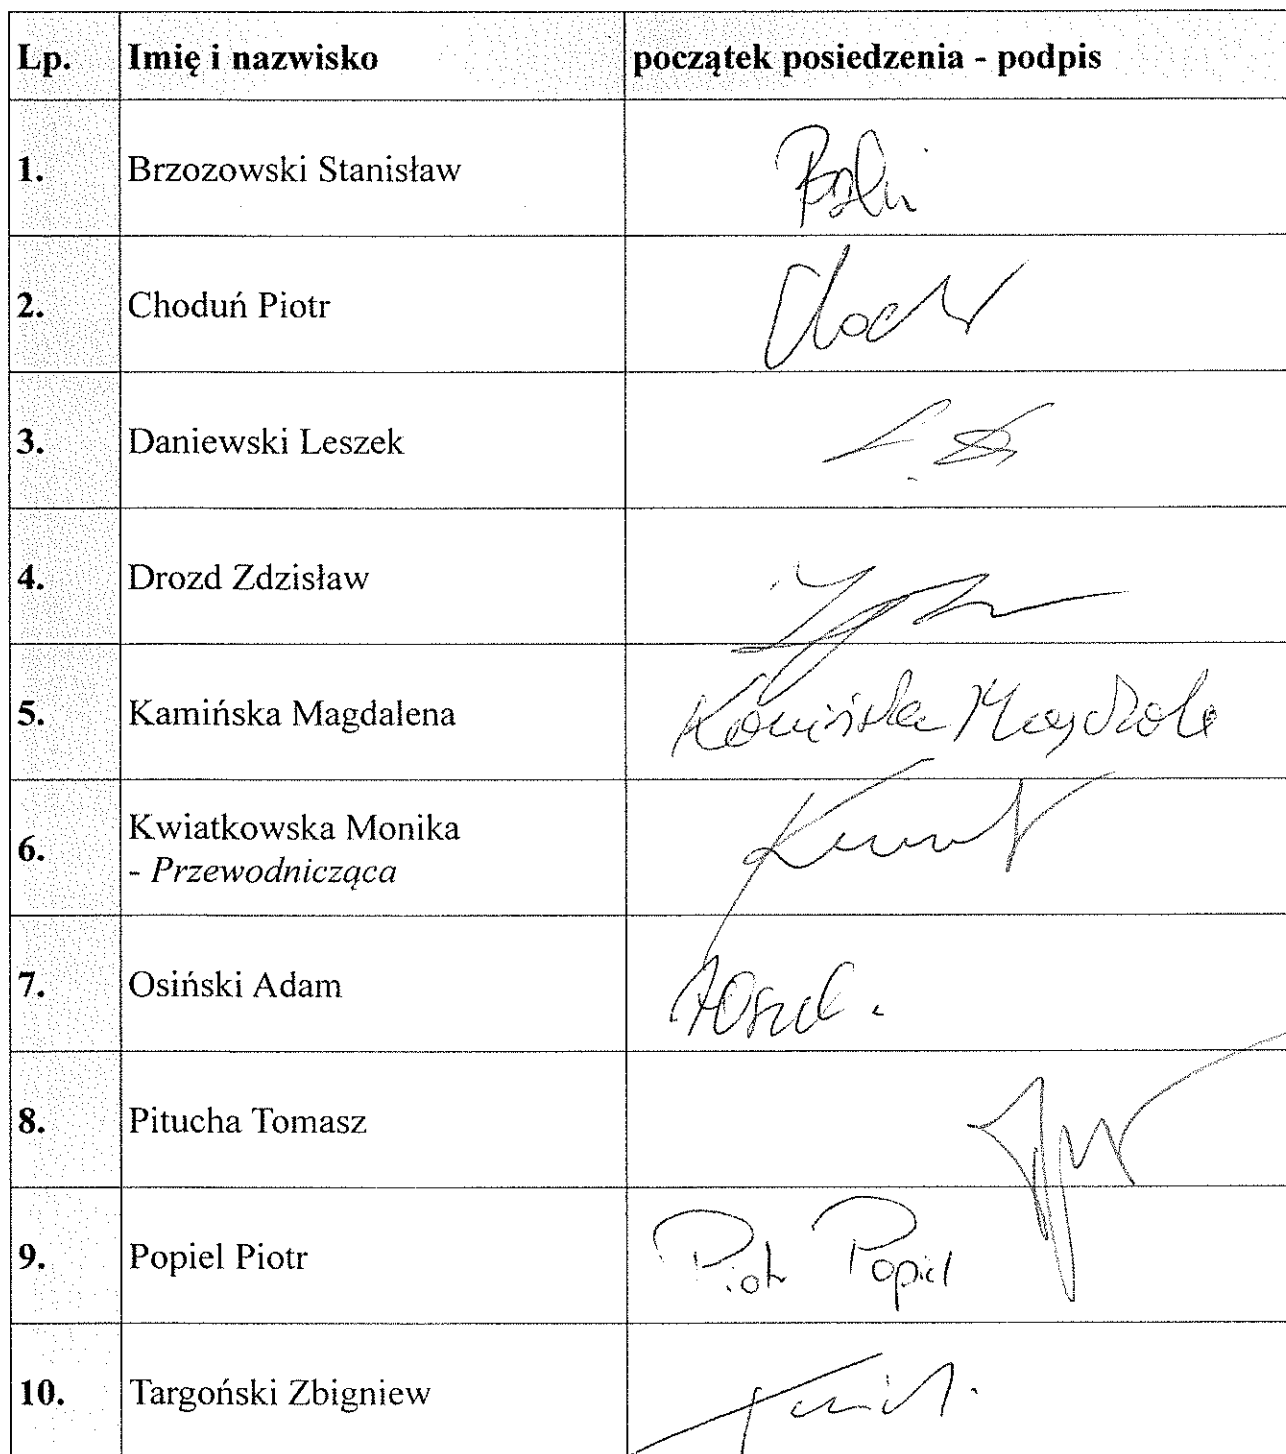 Lp. Imię i nazwisko początek posiedzenia - podpis
1. Brzozowski Stanisław
2. Choduń Piotr
3. Daniewski Leszek
4. Drozd Zdzisław
5. Kamińska Magdalena
6. Kwiatkowska Monika
- Przewodnicząca
7. Osiński Adam
8. Pitucha Tomasz
9. Popiel Piotr Piotr Popiel
10. Targoński Zbigniew